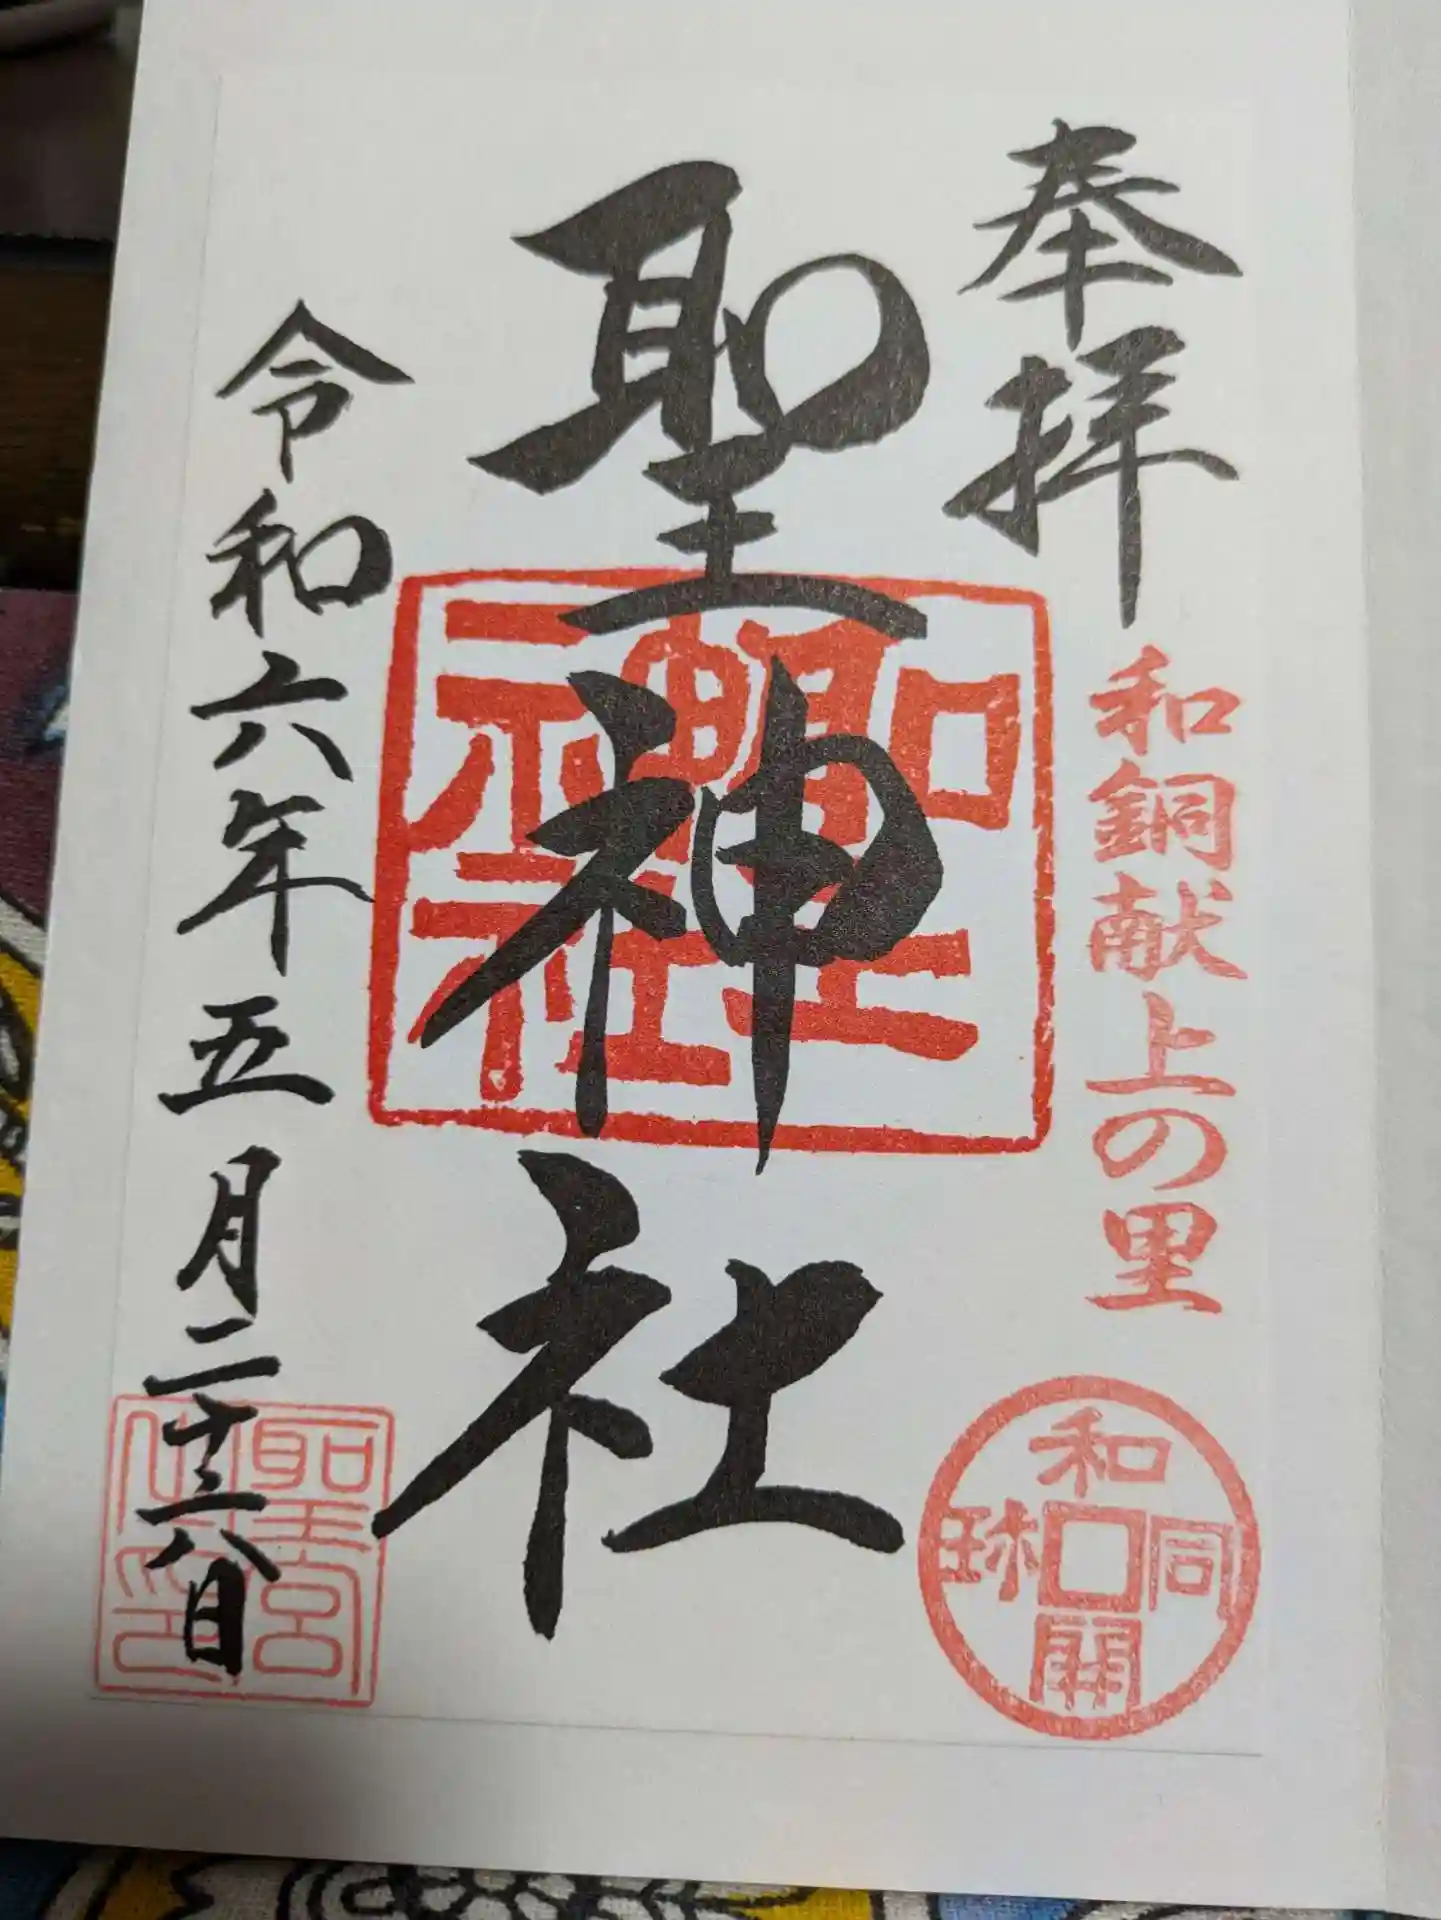 奉拝
和銅献上の里
和同開珎
聖神社
聖神社
令和六年五月二十六日
聖宮